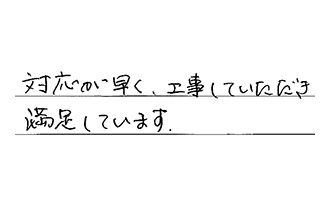 対応が早く、工事していただき
満足しています.